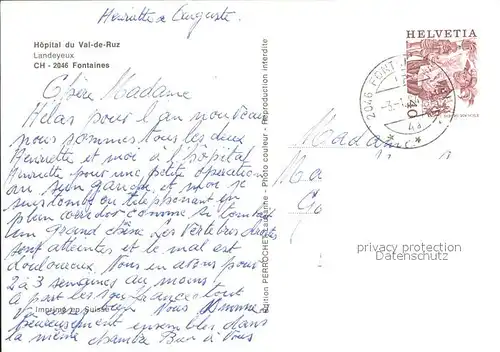 Henriette & Auguste.
Hôpital du Val-de-Ruz
Landeyeux
CH - 2046 Fontaines
HELVETIA
2046 FONTAINES
Chère Madame
Hélas pour l'an nouveau
nous sommes tous les deux
Henriette et moi à l'hôpital
Henriette pour une petite opération
au sein gauche et moi je
suis tombé au téléphone en
plein corridor comme si tombait
un grand chêne Les vertèbres
sont atteintes et le mal est
douloureux. Nous en avons pour
2 à 3 semaines au moins.
à part les tout
Nous sommes
heureusement ensembles dans
la même chambre Bien à vous
Madame
Ma
Go
Edition PERROCHET Lausanne - Photo couleur - Reproduction interdite
Imprimé en Suisse
privacy protection
Datenschutz